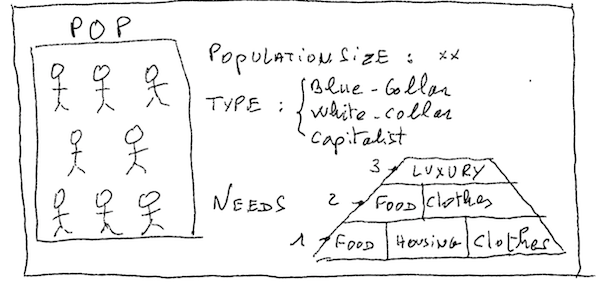 POP
POPULATION SIZE : xx
TYPE : { Blue-Collar
White-collar
Capitalist
3 → LUXURY
NEEDS 2 → FOOD Clothes
1 → FOOD HOUSING Clothes